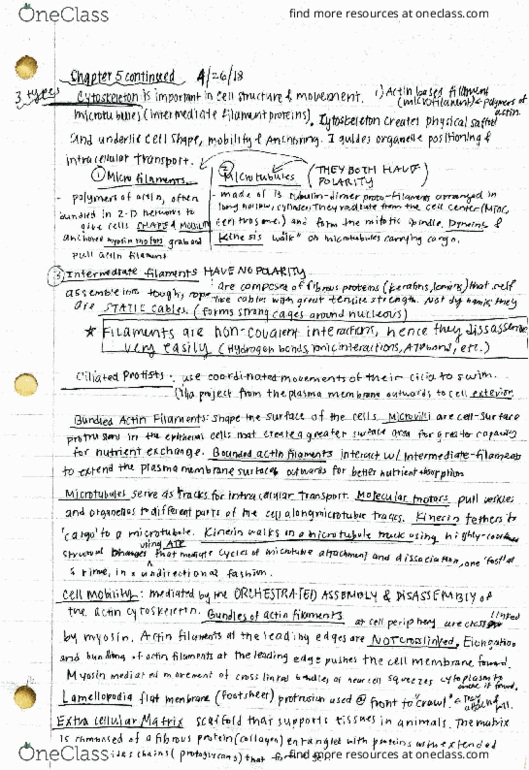 OneClass
find more resources at oneclass.com
Chapter 5 continued 4/26/18
3 types
Cytoskeleton is important in cell structure & movement. 1) Actin based filament
(microfilament) = polymers of
actin.
microtubules (intermediate filament proteins). Cytoskeleton creates physical
and underlie cell shape, mobility & Anchoring. I guides organelle positioning &
intracellular transport.
① Micro filaments
② Microtubules (THEY BOTH HAVE
POLARITY)
- polymers of actin, often
bundled in 2-D networks to
give cells SHAPE & MOBILITY
anchored myosin motors grab and
pull actin filament
- made of 13 tubulin-dimer proto-filaments arranged in
long hollow, cylinder. They radiate from the cell center (MTOC,
centrosome) and form the mitotic spindle. Dyneins &
Kinesis "walk" on microtubules carrying cargo.
③ Intermediate filaments HAVE NO POLARITY
: are composed of fibrous proteins (keratins, lamins) that self
assemble into tough, rope like cables with great tensile strength. Not dynamic, they
are STATIC cables (forms strong cages around nucleus)
★ Filaments are non-covalent interactions, hence they disassemble
very easily (Hydrogen bonds, ionic interactions, ATP, etc.)
Ciliated Protists : use coordinated movements of their cilia to swim.
Cilia project from the plasma membrane outwards to cell exterior.
Bundled Actin Filaments: shape the surface of the cells. Microvilli are cell-surface
protrusions in the epithelial cells that create a greater surface area for greater capacity
for nutrient exchange. Bounded actin filaments interact w/ intermediate-filaments
to extend the plasma membrane surface outwards for better nutrient absorption
Microtubules serve as tracks for intracellular transport. Molecular motors pull vesicles
and organelles to different parts of the cell along microtubule tracks. Kinesin tethers to
'cargo' to a microtubule. Kinesin walks on a microtubule track using highly-coordinated
using ATP
structural changes that mediate cycles of microtubule attachment and dissociation, one 'foot' at
a time, in a undirectional fashion.
Cell mobility : mediated by the ORCHESTRATED ASSEMBLY & DISASSEMBLY of
the actin cytoskeleton. Bundles of actin filaments at cell periphery are cross linked
by myosin. Actin filaments at the leading edges are NOT crosslinked. Elongation
and bundling of actin filaments at the leading edge pushes the cell membrane forward.
Myosin mediated movement of cross linked bundles at rear of cell squeezes cytoplasm to
move it forward.
Lamellopodia flat membrane (footsheet) protrusion used @ front to "crawl"
Extra cellular Matrix scaffold that supports tissues in animals. The matrix
is composed of a fibrous protein (collagen) entangled with proteins with extended
chains (protoglycans) that
OneClass
find more resources at oneclass.com